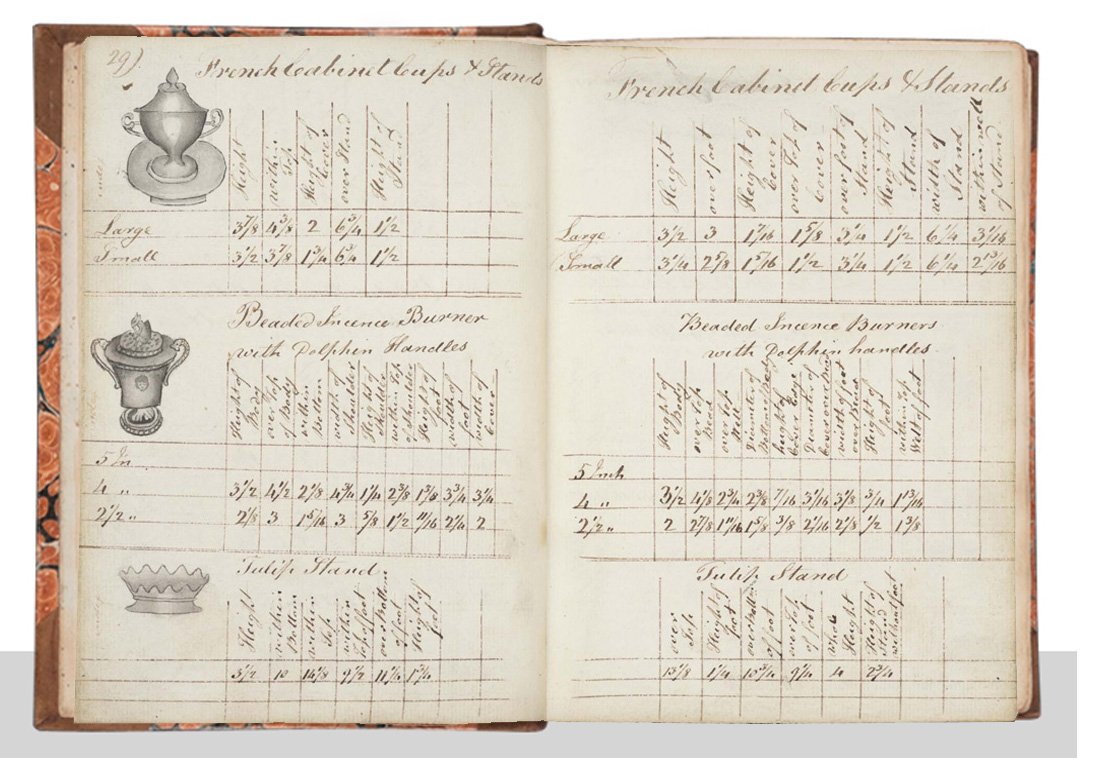 29).
French Cabinet Cups & Stands
Height
within Top
Height of Cover
over Stand
Height of Stand
Large 3 7/8 4 3/8 2 6 3/4 1 1/2
Small 3 1/2 3 7/8 1 3/4 6 3/4 1 1/2
Beaded Incence Burner
with Dolphin Handles
Height of Body
over Top of Body
within Bottom
width of Shoulder
Height of Shoulder
within Top of Shoulder
Height of foot
width of foot
width of Cover
5 In
4 " 3 1/2 4 1/2 2 1/8 4 3/4 1 1/4 2 3/8 1 5/8 3 3/4 3 1/4
2 1/2 " 2 1/8 3 1 5/16 3 5/8 1 1/2 11/16 2 1/4 2
Tulip Stand
Height
within Bottom
within Top
within Top of foot
over Bottom of foot
Height of foot
3 1/2 10 14 1/8 9 1/2 11 1/4 1 3/4
French Cabinet Cups & Stands
Height
over foot
Height of Cover
over Top of Cover
over foot of Stand
Height of Stand
width of Stand
within well of Stand
Large 3 1/2 3 1 7/16 1 5/8 3 1/4 1 1/2 6 1/4 3 1/16
Small 3 1/4 2 5/8 1 5/16 1 1/2 3 1/4 1 1/2 6 1/4 2 13/16
Beaded Incence Burners
with Dolphin handles
Height of Body
over Top Bead
over Top Well
width of foot over Bead
Height of foot
within Top Welt of foot
5 Inch
4 " 3 1/2 4 1/8 2 3/4 2 3/8 7/16 3 1/16 3 1/8 3/4 1 13/16
2 1/2 " 2 2 7/8 1 11/16 1 5/8 3/8 2 1/16 2 1/8 1/2 1 3/8
Tulip Stand
over Top
Height of foot
over Bottom of foot
over Top of foot
Whole Height
Height of Stand without foot
15 1/8 1 1/4 10 3/4 9 1/4 4 2 3/4